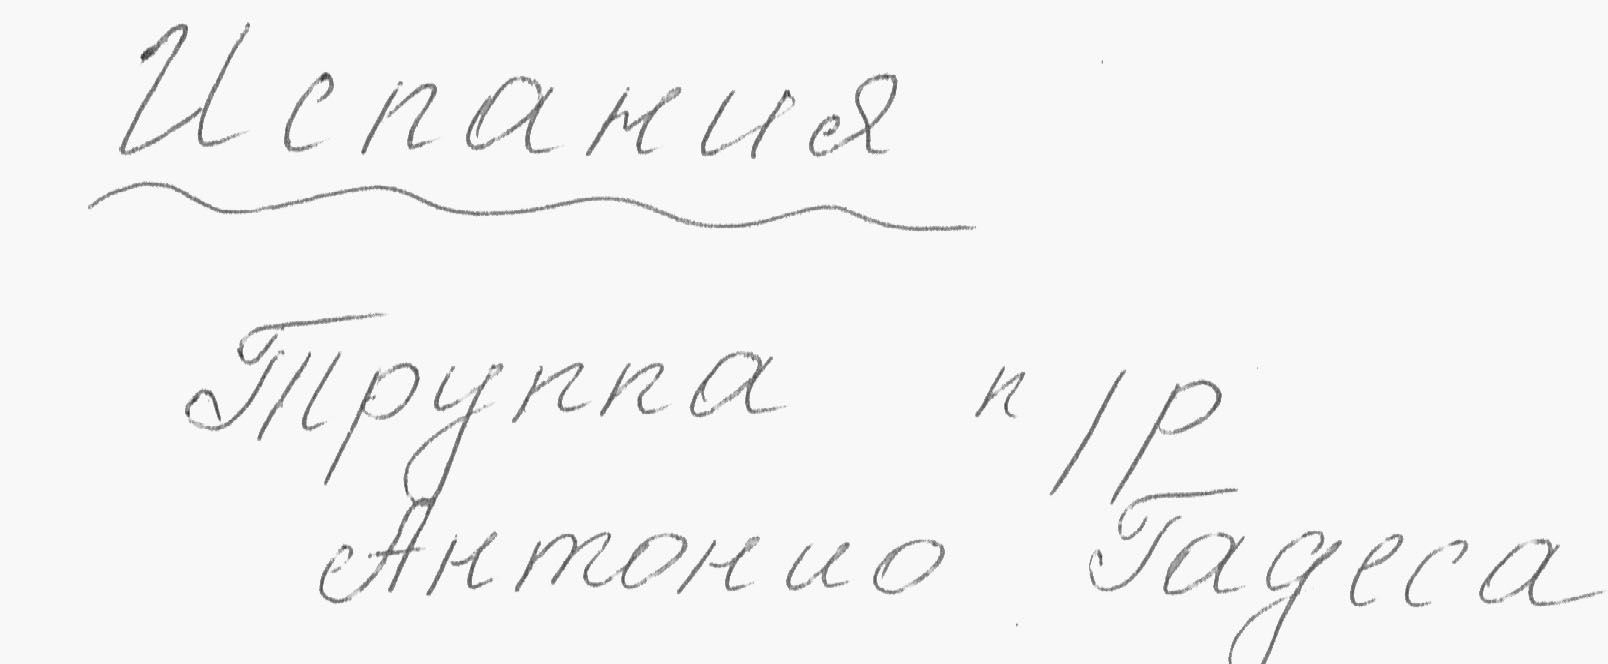 Испания
Труппа п/р
Антонио Гадеса